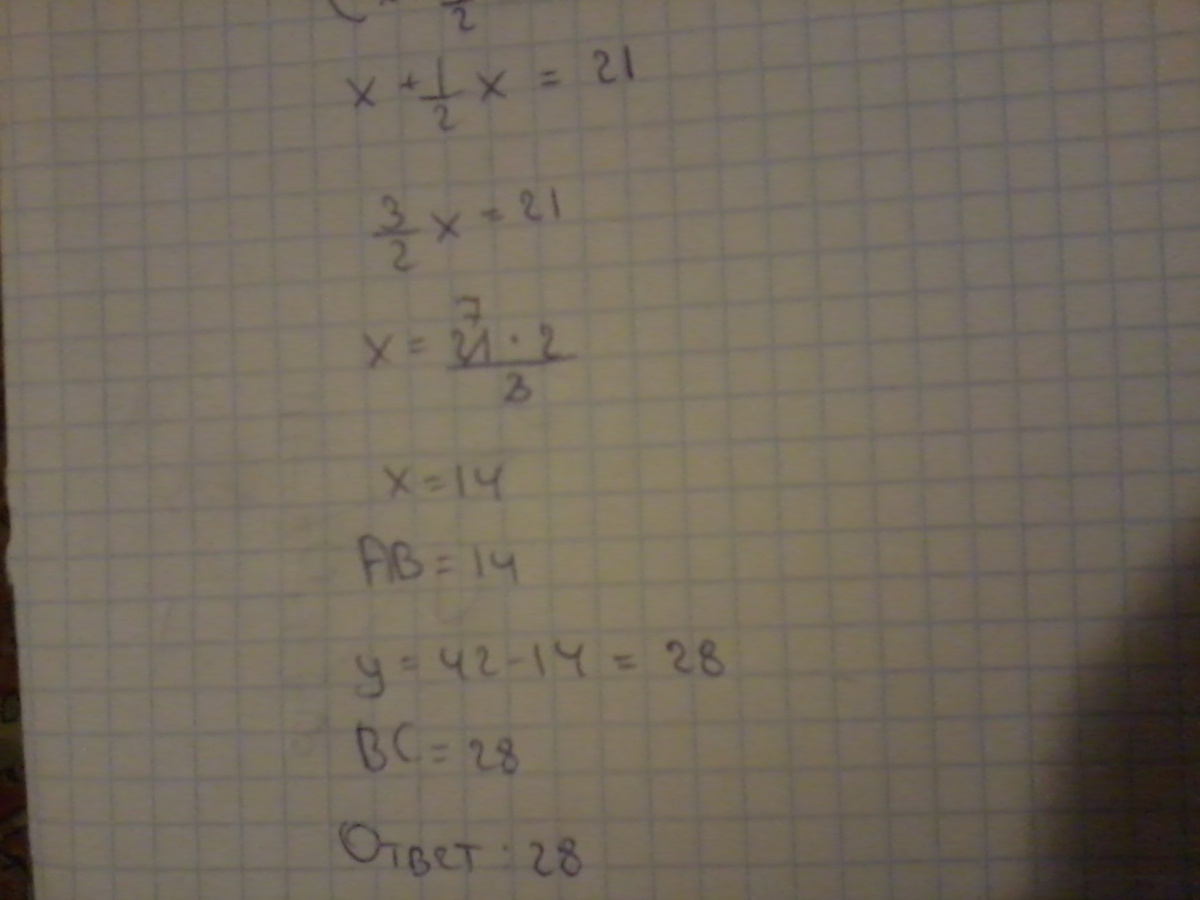 2
x + 1/2 x = 21
3/2 x = 21
7
x = 21 · 2 / 3
x = 14
AB = 14
y = 42 - 14 = 28
BC = 28
Ответ: 28